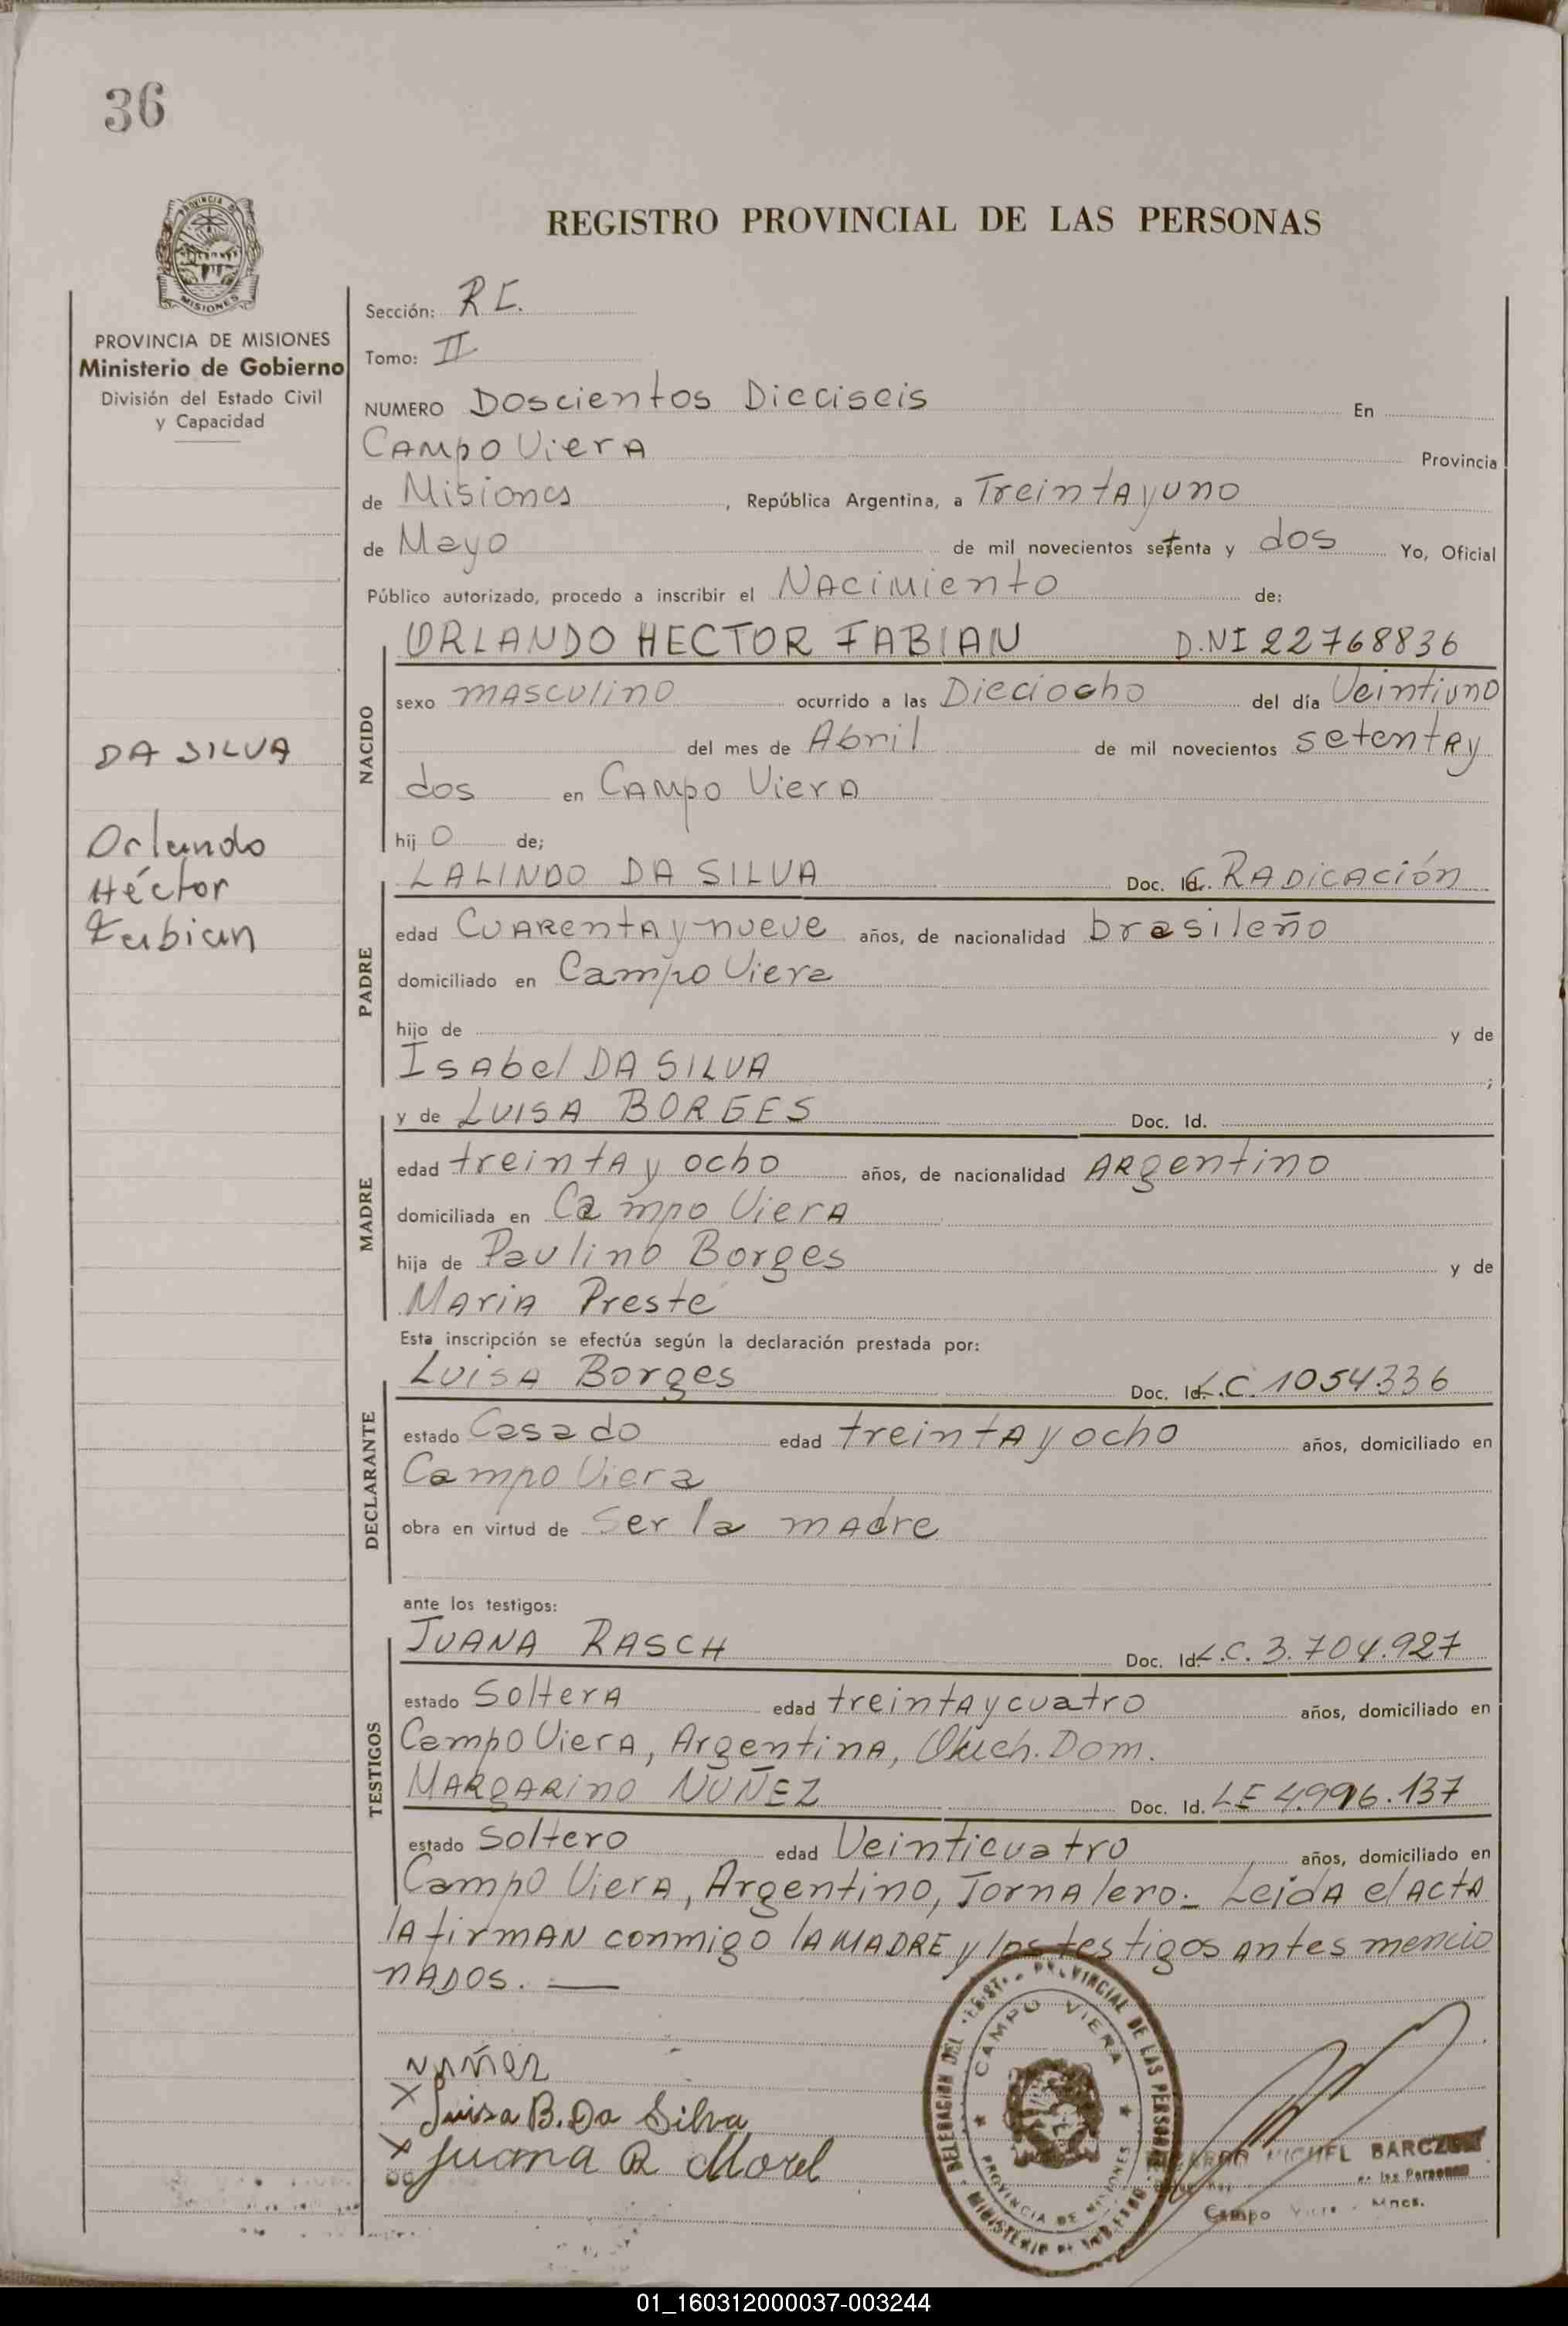 36
REGISTRO PROVINCIAL DE LAS PERSONAS
PROVINCIA DE MISIONES
Ministerio de Gobierno
División del Estado Civil
y Capacidad
DA SILVA
Orlando
Héctor
Fabian
Sección:
Tomo: II
NUMERO Doscientos Dieciseis En
Campo Viera Provincia
de Misiones, República Argentina, a Treinta y uno
de Mayo de mil novecientos setenta y dos Yo, Oficial
Público autorizado, procedo a inscribir el Nacimiento de:
NACIDO
ORLANDO HECTOR FABIAN D.NI 22768836
sexo masculino ocurrido a las Dieciocho del día Veintiuno
del mes de Abril de mil novecientos setenta y
dos en Campo Viera
hijo de;
PADRE
LALINDO DA SILVA Doc. Id. C. RADICAción
edad Cuarenta y nueve años, de nacionalidad brasileño
domiciliado en Campo Viera
hijo de y de
Isabel DA SILVA ;
MADRE
y de LUISA BORGES Doc. Id.
edad treinta y ocho años, de nacionalidad Argentino
domiciliada en Campo Viera
hija de Paulino Borges y de
Maria Preste
Esta inscripción se efectúa según la declaración prestada por:
DECLARANTE
Luisa Borges Doc. Id. L.C. 1054.336
estado Casado edad treinta y ocho años, domiciliado en
Campo Viera
obra en virtud de Ser la madre
ante los testigos:
TESTIGOS
JUANA RASCH Doc. Id. L.C. 3.704.927
estado Soltera edad treinta y cuatro años, domiciliado en
Campo Viera, Argentina, Dom.
MARGARino NUÑEZ Doc. Id. LE 4.996.137
estado Soltero edad Veinticuatro años, domiciliado en
Campo Viera, Argentino, Jornalero.- Leida el acta
la firman conmigo la MADRE y los testigos antes mencio
nados. —
Nuñez
X Luisa B. Da Silva
X Juana R Morel
DELEGACION DEL PROVINCIAL DE LAS PERSONAS
CAMPO VIERA
PROVINCIA DE MISIONES
MINISTERIO DE GOBIERNO
MICHEL
de las Personas
Campo Viera - Mnes.
01_160312000037-003244